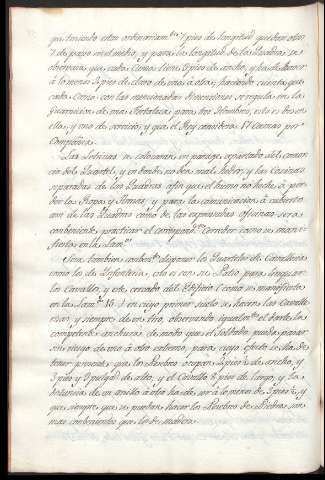 que teniendo estas ordinariam.te 7 pies de longitud quedan otros
7 de passo en el centro, y para la longitud de las Quadras se
observará que cada Cama tiene 5 pies de ancho, y ha de haver
á lo menos 3 pies de claro de una, á otra; haciendo cuenta que
cada Cama con las mencionadas dimensiones se regula en la
Guarnicion de una Fortaleza para tres Hombres, esto es dos en
ella, y uno de servicio; y que el Rey considera 17 Camas por
Compañia.
Las letrinas se colocarán en parage apartado del comercio
del Quartel, y en donde no den mal hedor, y las Cocinas
separadas de las Quadras afin que el humo no heche á perder
la Ropa, y Armas; y para la comunicacion á cubierto
asi de las Quadras como de las expresadas oficinas será
conveniente practicar el Corredor como se manifiesta
en la Lam.na
Sera tambien combeniente disponer los Quarteles de Cavalleria
como los de Infanteria, esto es con su Patio para limpiar
los Cavallos, y este cercado del Edificio (como se manifiesta
en la Lam.na 15.) en cuyo primer suelo se hacen las Cavallerizas
y siempre de un tiro, observando igualm.te el darle la
competente anchura de modo que el Soldado pueda pasar
sin riesgo de uno á otro extremo, para cuyo efecto se ha de
tener presente que los Pesebres ocupan 2 pies de ancho, y
3 pies y 6 pulgad.s de alto, y el Cavallo 8 pies de largo, y la
distancia de un anillo á otro ha de ser á lo menos de 3 pies, y
que siempre que se puedan hacer los Pesebres de Piedra son
mas combenientes que los de madera.